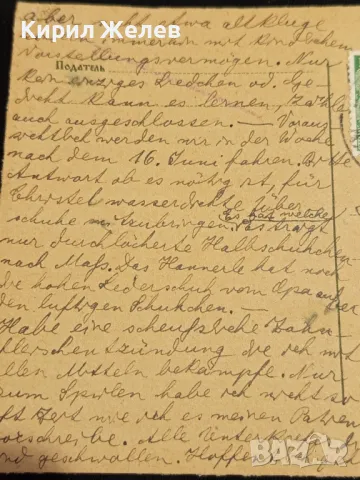 Кирил Желев
aber nicht etwa altkluge
immerum mit kindischem
Vorstellungsvermögen. Nur
Податель
kein einziges Liedchen od. Ge-
dicht kann es lernen, Zahlen
auch ausgeschlossen. — Voraus-
sichtlich werden wir in der Woche
nach dem 16. Juni fahren. Bitte
Antwort ob es nötig ist, für
Christel wasserdichte Über
schuhe mitzubringen. Es trägt
Er hat welche
nur durchlöcherte Halbschühchen
nach Maß. Das Hannerle hat noch
die hohen Lederschuh vom Opa außer
den luftigen Schühchen. —
Habe eine scheußliche Zahn-
fleischentzündung die ich mit
allen Mitteln bekämpfe. Nur
zum Spülen habe ich nicht so
oft Zeit wie ich es meinen Patien
vorschreibe. Alle Unterk
und geschwollen. Hoffen
BAZAR